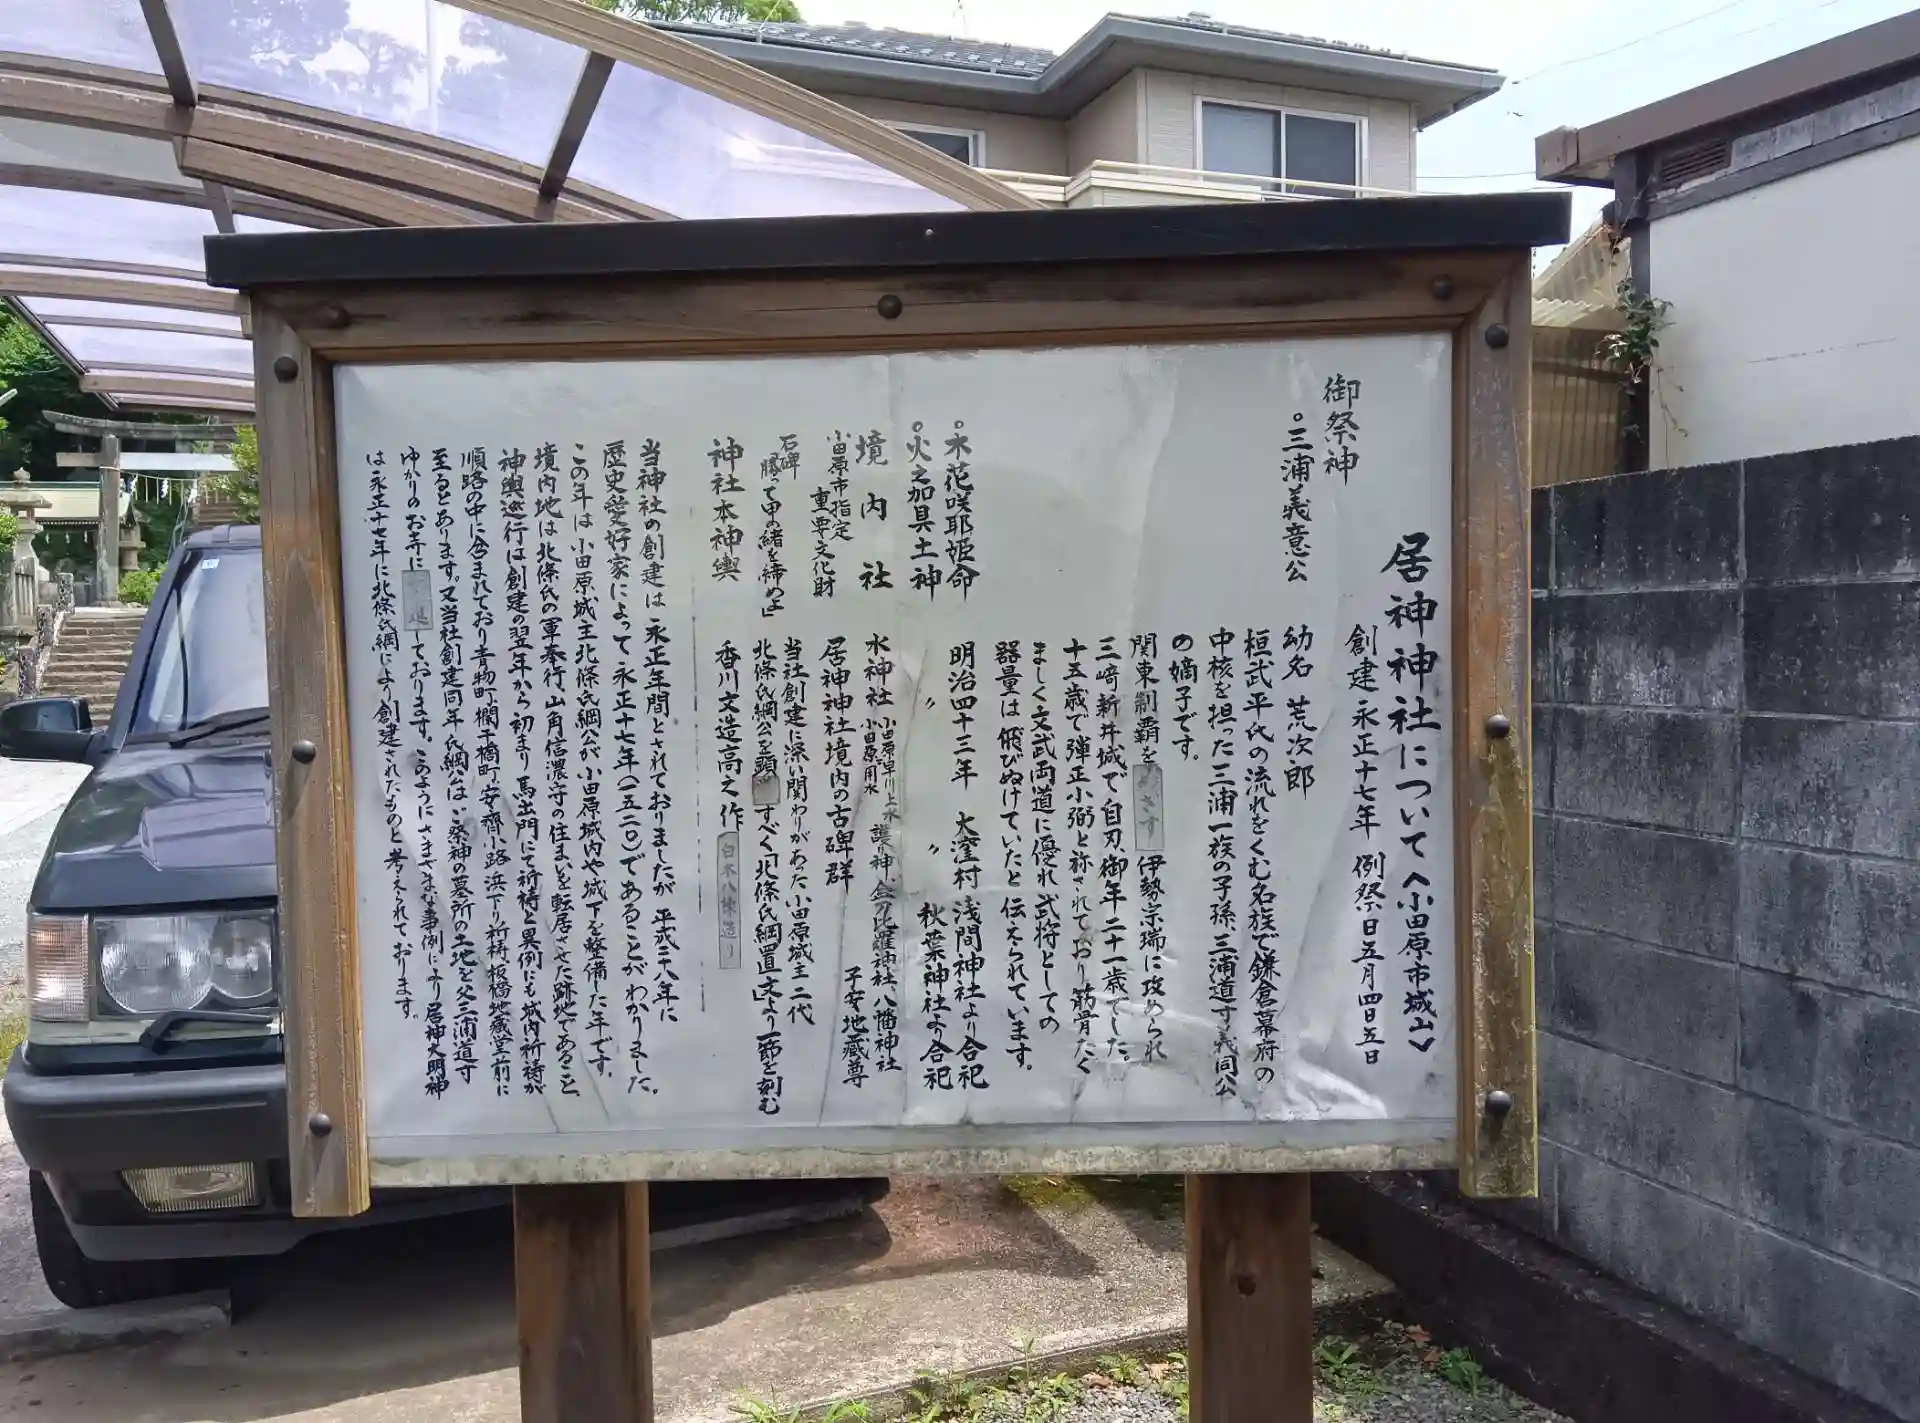 居神神社について〈小田原市城山〉
創建 永正十七年 例祭日五月四日五日
御祭神
。三浦義意公
幼名 荒次郎
桓武平氏の流れをくむ名族で鎌倉幕府の
中核を担った三浦一族の子孫、三浦道寸義同公
の嫡子です。
関東制覇をめざす伊勢宗瑞に攻められ
三﨑新井城で自刃、御年二十一歳でした。
十五歳で弾正小弼と称されており筋骨たく
ましく文武両道に優れ武将としての
器量は飛びぬけていたと伝えられています。
。木花咲耶姫命 明治四十三年 大窪村 浅間神社より合祀
。火之加具土神 〃 〃 秋葉神社より合祀
境内社 水神社 小田原早川上水 小田原用水 護神、金刀比羅神社、八幡神社
子安地蔵尊
小田原市指定 重要文化財 居神神社境内の古碑群
石碑 当社創建に深い関わりがあった小田原城主二代
勝って甲の緒を締めよ」 北條氏綱公を顕すべく「北條氏綱置文」より一節を刻む
神社本神輿 香川文造高之作 白木八棟造り
当神社の創建は永正年間とされておりましたが平成二十八年に
歴史愛好家によって永正十七年(一五二〇)であることがわかりました。
この年は小田原城主北條氏綱公が小田原城内や城下を整備した年です。
境内地は北條氏の軍奉行、山角信濃守の住まいを転居させた跡地であること、
神輿巡行は創建の翌年から初まり馬出門にて祈祷と異例にも城内祈祷が
順路の中に含まれており青物町、欄干橋町、安齋小路、浜下り祈祷、板橋地蔵堂前に
至るとあります。又当社創建同年氏綱公は、ご祭神の墓所の土地を父三浦道寸
ゆかりのお寺に進しております。このようにさまざまな事例により居神大明神
は永正十七年に北條氏綱により創建されたものと考えられております。